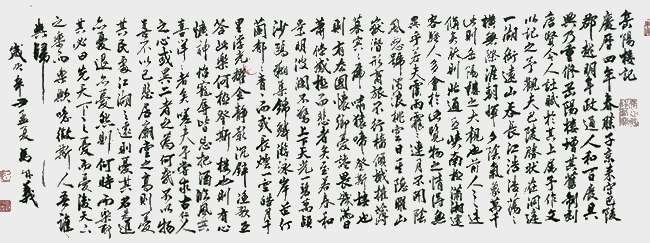 岳陽樓記
慶曆四年春滕子京谪守巴陵
郡越明年政通人和百廢具
興乃重修岳陽樓增其舊制刻
唐賢今人詩賦於其上屬予作文
以記之予觀夫巴陵勝狀在洞庭
一湖銜遠山吞長江浩浩湯湯
橫無際涯朝暉夕陰氣象萬千
此則岳陽樓之大觀也前人之述
備矣然則北通巫峽南極瀟湘遷
客騷人多會於此覽物之情得無
異乎若夫霪雨霏霏連月不開陰
風怒號濁浪排空日星隱曜山
嶽潛形商旅不行檣傾楫摧薄
暮冥冥虎嘯猿啼登斯樓也
則有去國懷鄉憂讒畏譏滿目
蕭然感極而悲者矣至若春和
景明波瀾不驚上下天光一碧萬頃
沙鷗翔集錦鱗游泳岸芷汀
蘭郁郁青青而或長煙一空皓月千
里浮光耀金靜影沉璧漁歌互
答此樂何極登斯樓也則有心
曠神怡寵辱皆忘把酒臨風其
喜洋洋者矣嗟夫予嘗求古仁人
之心或異二者之為何哉不以物
喜不以己悲居廟堂之高則憂
其民處江湖之遠則憂其君是進
亦憂退亦憂然則何時而樂耶
其必曰先天下之憂而憂後天下
之樂而樂歟噫微斯人吾誰
與歸